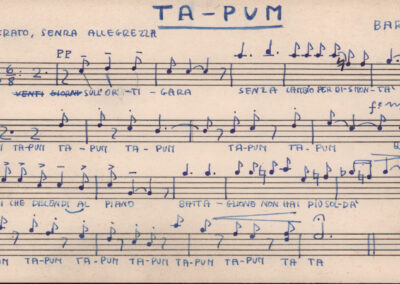 TA-PUM
ERATO, SENZA ALLEGREZZA BAR
PP
6/8
VENTI GIORNI SULL'OR - TI - GARA SENZA CAMBIO PER DISMON-TA'
TA-PUM TA-PUM TA-PUM TA-PUM
CHE DISCENDI AL PIANO BATTA-GLIONE NON HAI PIÙ SOLDA'
TA-PUM TA-PUM TA-PUM TA-PUM TA TA